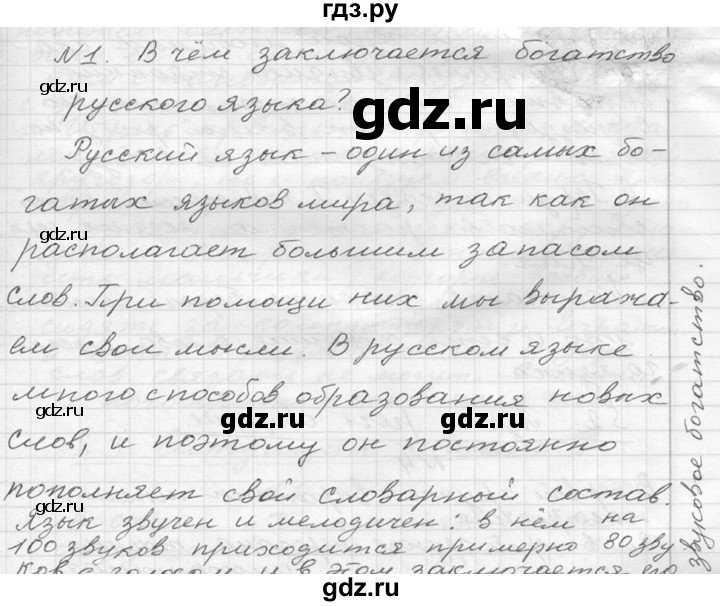 гдз.ру
№1. В чём заключается богатство
gdz.ru
gdz.ru
русского языка?
gdz.ru
gdz.ru
Русский язык – один из самых бо-
гатых языков мира, так как он
gdz.ru
gdz.ru
располагает большим запасом
слов. При помощи них мы выража-
ем свои мысли. В русском языке
gdz.ru
gdz.ru
много способов образования новых
слов, и поэтому он постоянно
gdz.ru
gdz.ru
пополняет свой словарный состав.
Язык звучен и мелодичен: в нём на
100 звуков приходится примерно 80 зву
gdz.ru
gdz.ru
ков с голосом и в этом заключается его
звуковое богатство.
gdz.ru